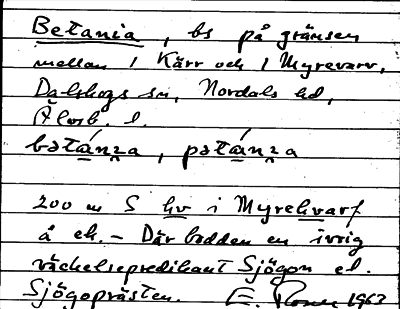 Betania, bs på gränsen
mellan 1 Kärr och 1 Myrevarv,
Dalskogs sn, Nordals hd,
Älvsb. l.
bətánɪa, pətánɪa
200 m S hv i Myrehvarf
å ek. – Där bodde en ivrig
väckelsepredikant Sjögren el.
Sjögoprästen. E. 1963